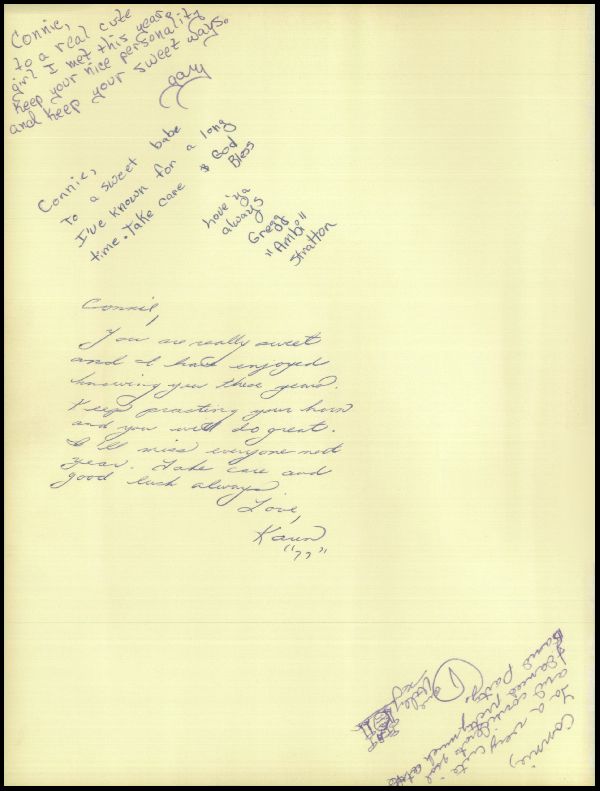 Connie,
to a real cute
girl I met this year.
Keep your nice personality
and keep your sweet ways.
Gary
Connie,
To a sweet babe
I've known for a long
time. Take care & God
Bless
Love 'ya
always
Gregg
"Ambi"
Stratton
Connie,
You are really sweet
and I have enjoyed
knowing you these years.
Keep practing your horn
and you will do great.
I'll miss everyone next
year. Take care and
good luck always.
Love,
Karen
"77"
Connie,
To a very cute
and
pretty much at the
Band Party.